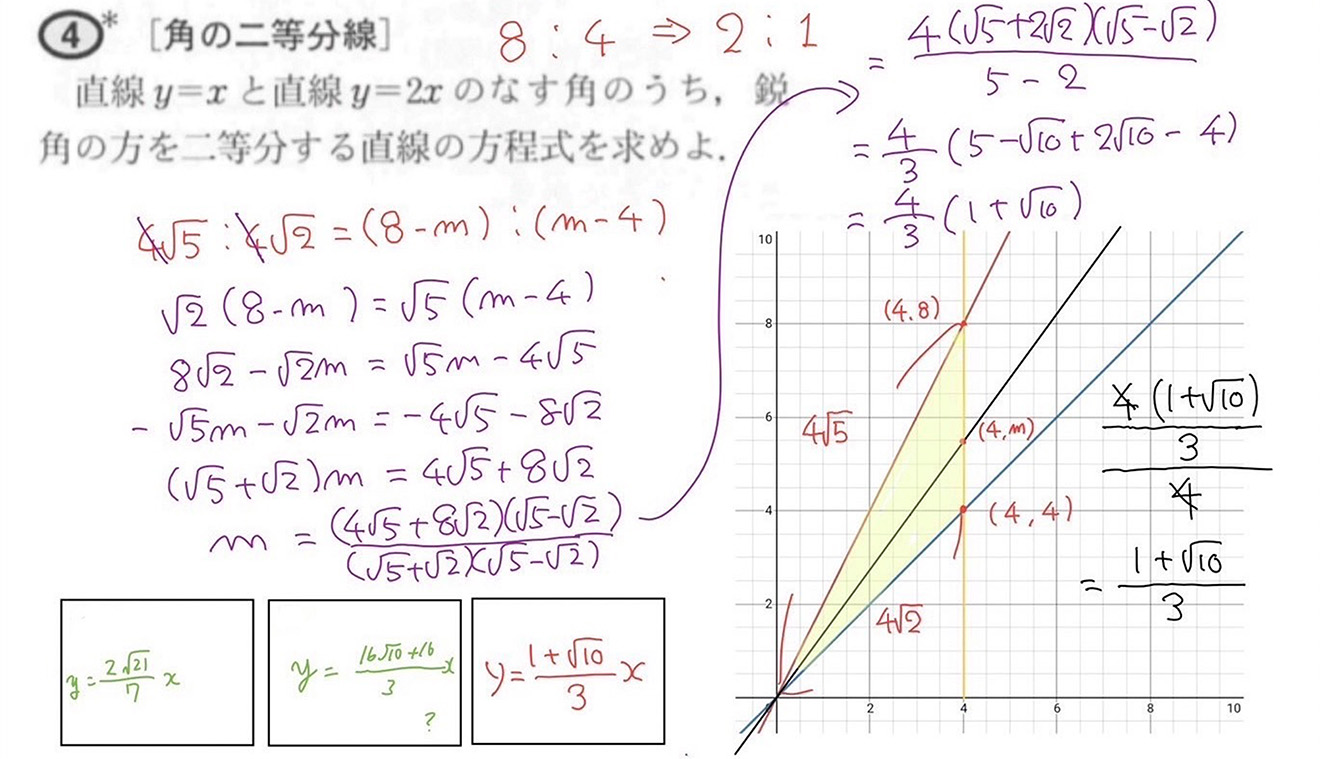 ④* ［角の二等分線］
8 : 4 ⇒ 2 : 1
直線 y=x と直線 y=2x のなす角のうち，鋭
角の方を二等分する直線の方程式を求めよ．
4√5 : 4√2 = (8-m) : (m-4)
√2 (8-m) = √5 (m-4)
8√2 - √2m = √5m - 4√5
- √5m - √2m = -4√5 - 8√2
(√5+√2)m = 4√5 + 8√2
m = (4√5+8√2)(√5-√2) / (√5+√2)(√5-√2)
= 4(√5+2√2)(√5-√2) / 5-2
= 4/3 (5-√10+2√10-4)
= 4/3 (1+√10)
10
8
6
4
2
0
2
4
6
8
10
(4.8)
4√5
(4,m)
(4,4)
4√2
4(1+√10)/3 / 4
= 1+√10 / 3
y = 2√21/7 x
y = 16√10+16 / 3 x
?
y = 1+√10 / 3 x